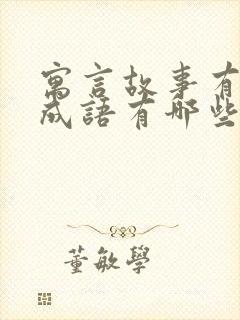 寓言故事有
成語有哪些
董敏學